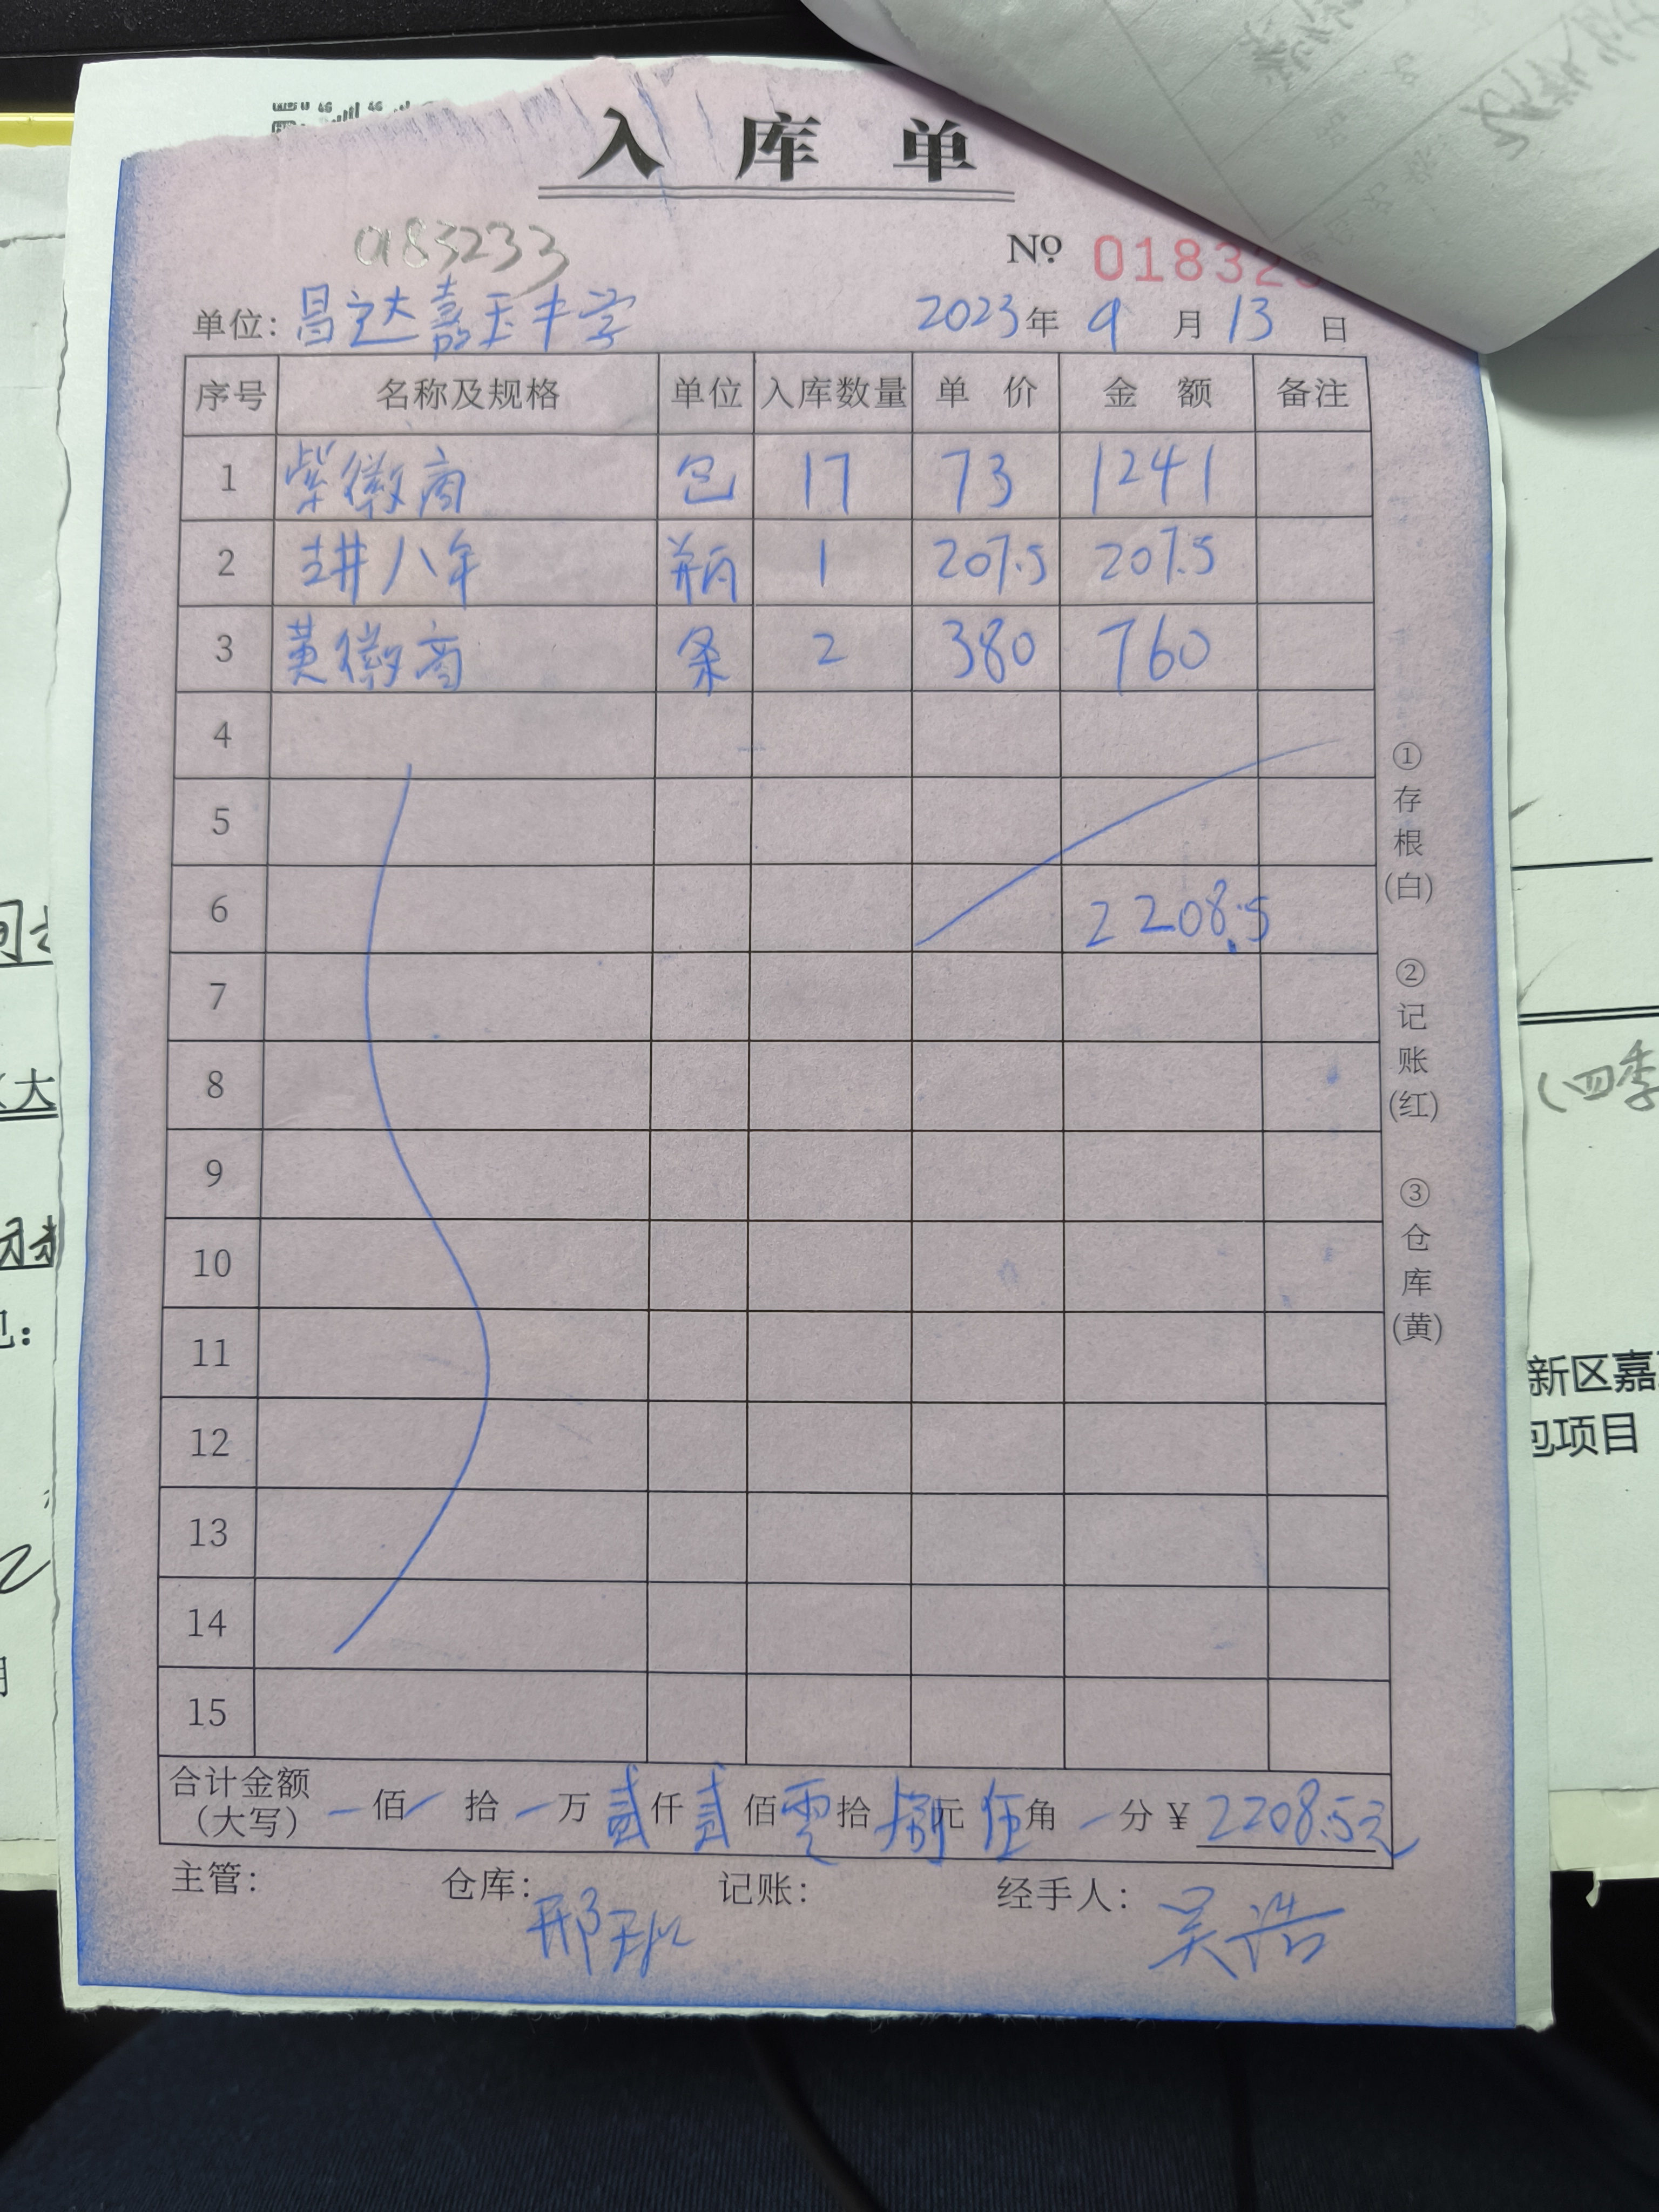 入库单
0183233
№ 01832
单位: 昌达嘉玉中学 2023年 9月13日
序号 名称及规格 单位 入库数量 单价 金额 备注
1 紫徽商 包 17 73 1241
2 古井八年 瓶 1 207.5 207.5
3 黄徽商 条 2 380 760
4
5
6 2208.5
7
8
9
10
11
12
13
14
15
①存根(白)
②记账(红)
③仓库(黄)
合计金额(大写) 一佰一拾一万贰仟贰佰零拾捌元伍角一分¥2208.5元
主管: 仓库: 邢 记账: 经手人: 吴浩
(四季
新区嘉
包项目